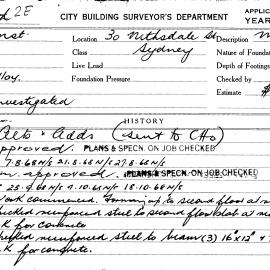 2E CITY BUILDING SURVEYOR'S DEPARTMENT APPLIC
YEAR
Location 30 Nithsdale St Description
Class Sydney Nature of Foundation
Live Load Depth of Footings
Foundation Pressure Checked by
Estimate $
investigated
HISTORY
Alts & Adds (sent to CHO)
approved. PLANS & SPECN. ON JOB CHECKED
7.8.68 NS 21.8.68 NS 27.8.68 NS
approved. PLANS & SPECN. ON JOB CHECKED
25.9.68 NS 9.10.68 NS 18.10.68 NS
work commenced. Forming up to second floor
checked reinforced steel to second floor slab
OK for concrete
checked reinforced steel to beam (3) 16"x12" &
OK for concrete.